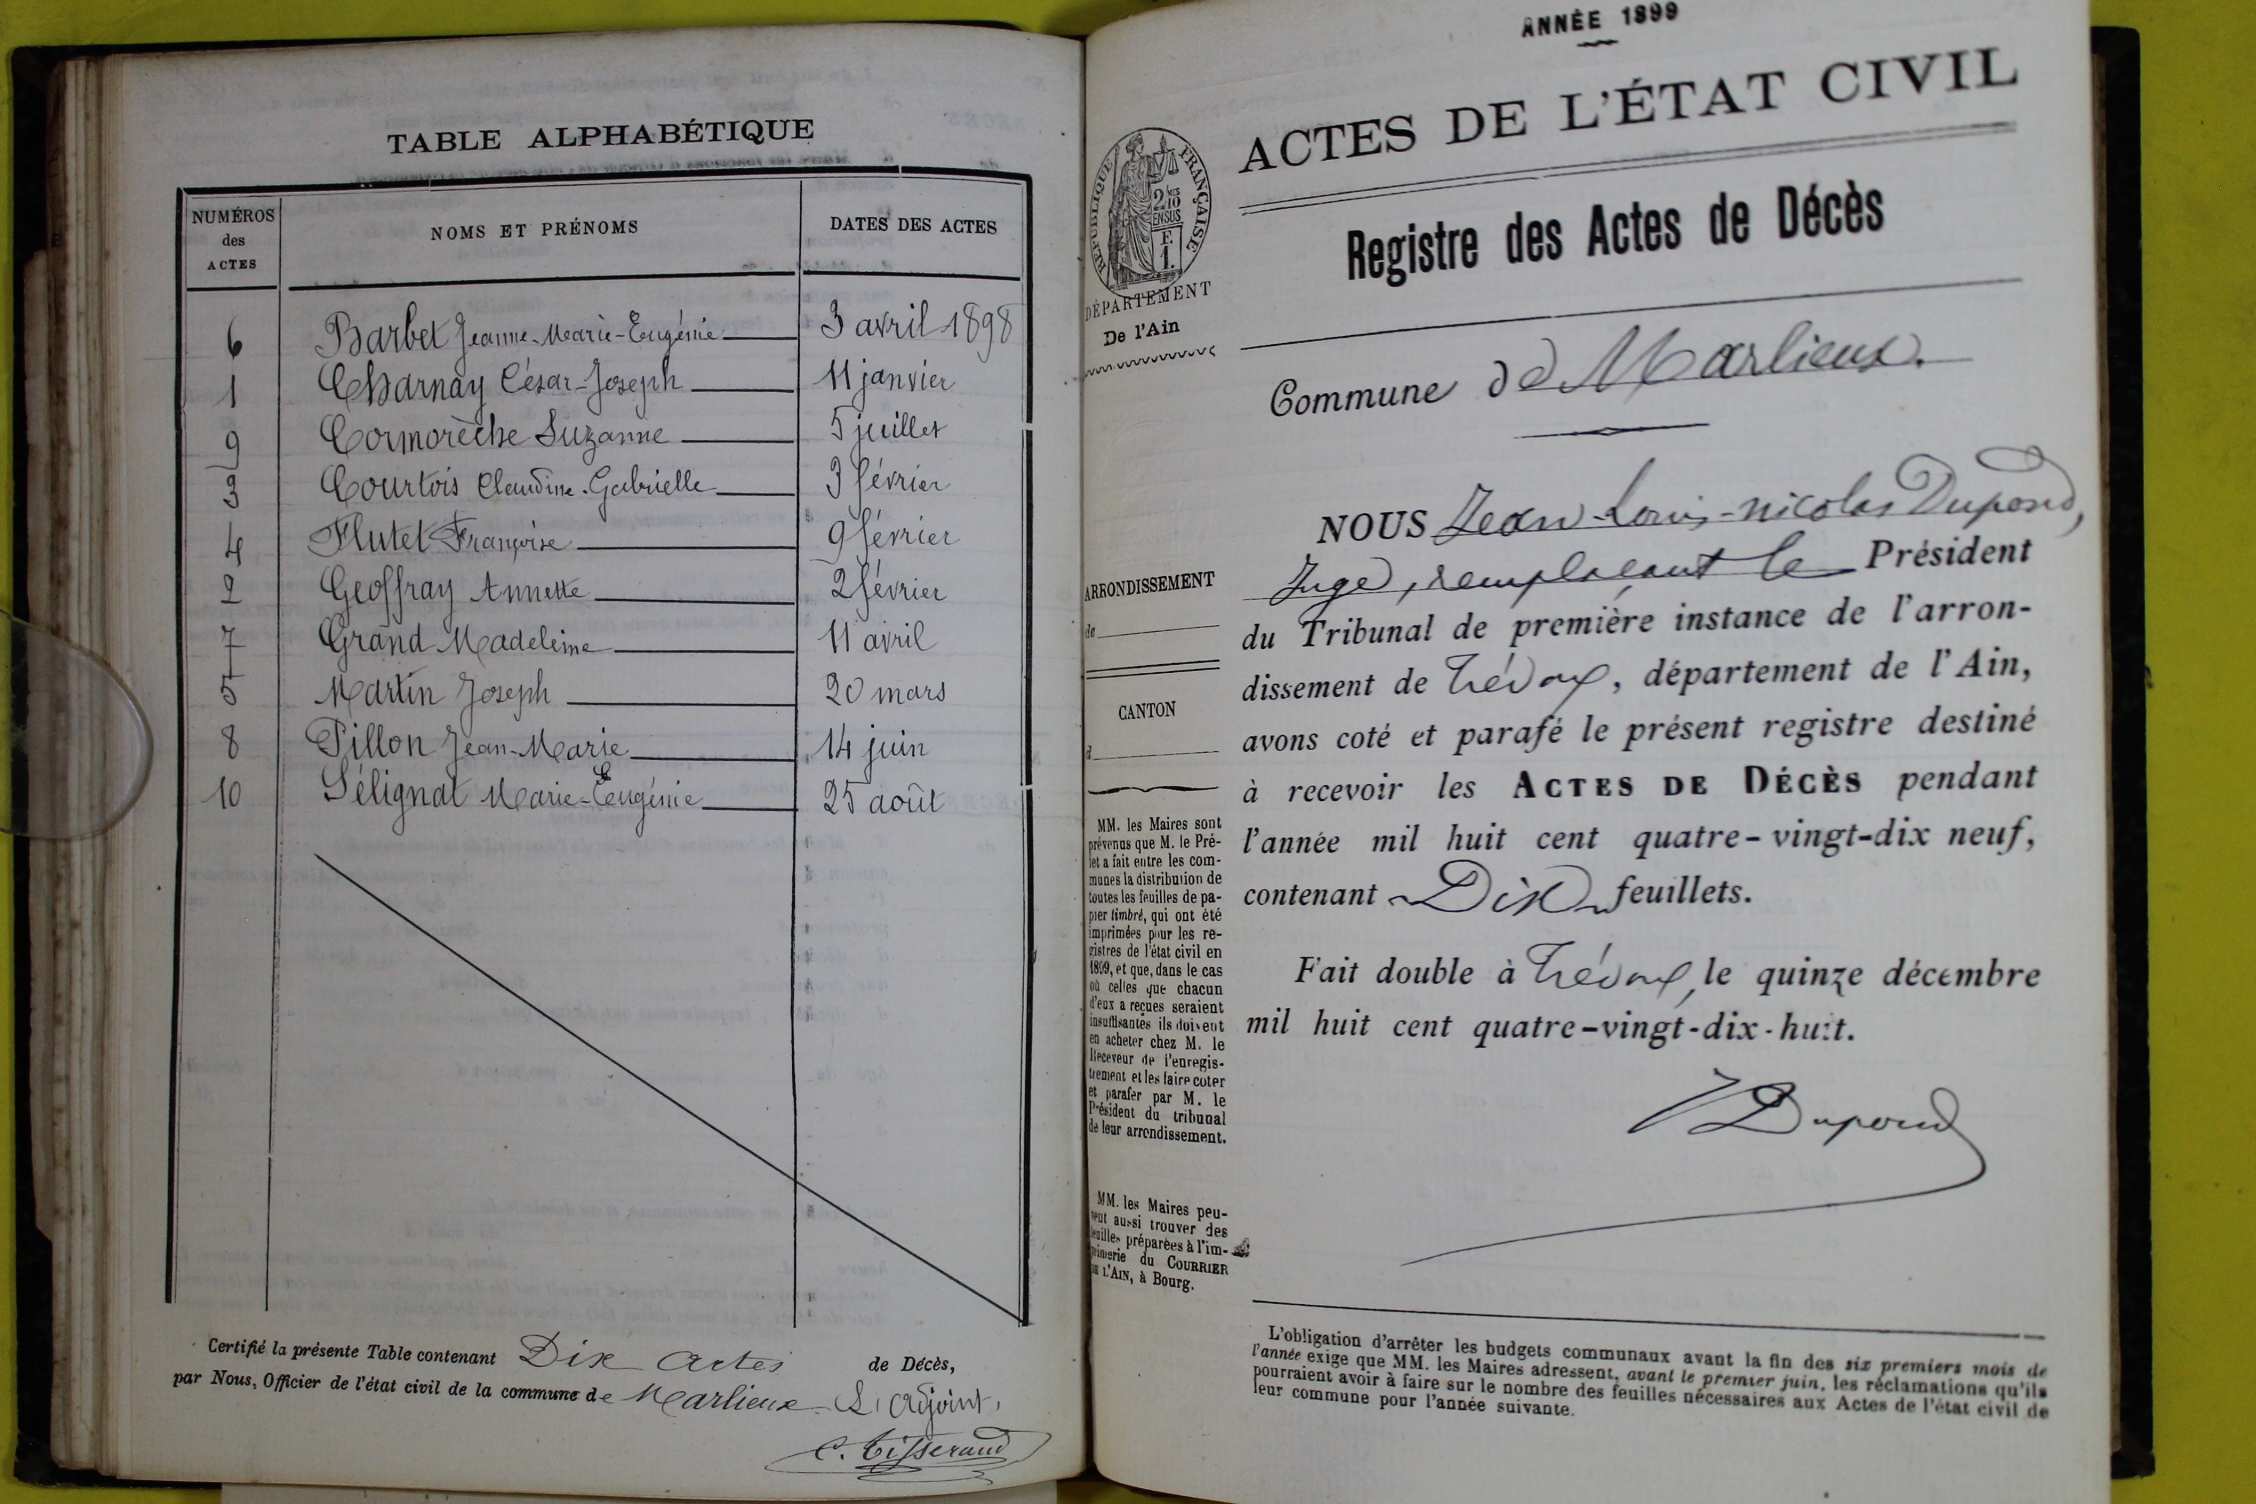 TABLE ALPHABÉTIQUE
NUMÉROS des ACTES NOMS ET PRÉNOMS DATES DES ACTES
6 Barbet Jeanne-Marie-Eugénie 3 avril 1898
1 Charnay César-Joseph 11 janvier
9 Cormorèche Suzanne 5 juillet
3 Courtois Claudine-Gabrielle 3 février
4 Flutet Françoise 9 février
2 Geoffray Annette 2 février
7 Grand Madeleine 11 avril
5 Martin Joseph 20 mars
8 Pillon Jean-Marie 14 juin
10 Sélignat Marie-Eugénie 25 août
Certifié la présente Table contenant Dix actes de Décès,
par Nous, Officier de l'état civil de la commune de Marlieux. L'adjoint,
C. Tisserand
ANNÉE 1899
ACTES DE L'ÉTAT CIVIL
RÉPUBLIQUE FRANÇAISE
2/10 EN SUS
F. 1.
DÉPARTEMENT
De l'Ain
Registre des Actes de Décès
Commune de Marlieux.
ARRONDISSEMENT
de
CANTON
d
MM. les Maires sont
prévenus que M. le Pré-
fet a fait entre les com-
munes la distribution de
toutes les feuilles de pa-
pier timbré, qui ont été
imprimées pour les re-
gistres de l'état civil en
1899, et que, dans le cas
où celles que chacun
d'eux a reçues seraient
insuffisantes ils doivent
en acheter chez M. le
Receveur de l'enregis-
trement et les faire coter
et parafer par M. le
Président du tribunal
de leur arrondissement.
MM. les Maires peu-
vent aussi trouver des
feuilles préparées à l'im-
primerie du COURRIER
DE L'AIN, à Bourg.
NOUS Jean-Louis-Nicolas Dupond,
Juge, remplaçant le Président
du Tribunal de première instance de l'arron-
dissement de Trévoux, département de l'Ain,
avons coté et parafé le présent registre destiné
à recevoir les ACTES DE DÉCÈS pendant
l'année mil huit cent quatre-vingt-dix neuf,
contenant Dix feuillets.
Fait double à Trévoux, le quinze décembre
mil huit cent quatre-vingt-dix-huit.
Dupond
L'obligation d'arrêter les budgets communaux avant la fin des six premiers mois de
l'année exige que MM. les Maires adressent, avant le premier juin, les réclamations qu'ils
pourraient avoir à faire sur le nombre des feuilles nécessaires aux Actes de l'état civil de
leur commune pour l'année suivante.